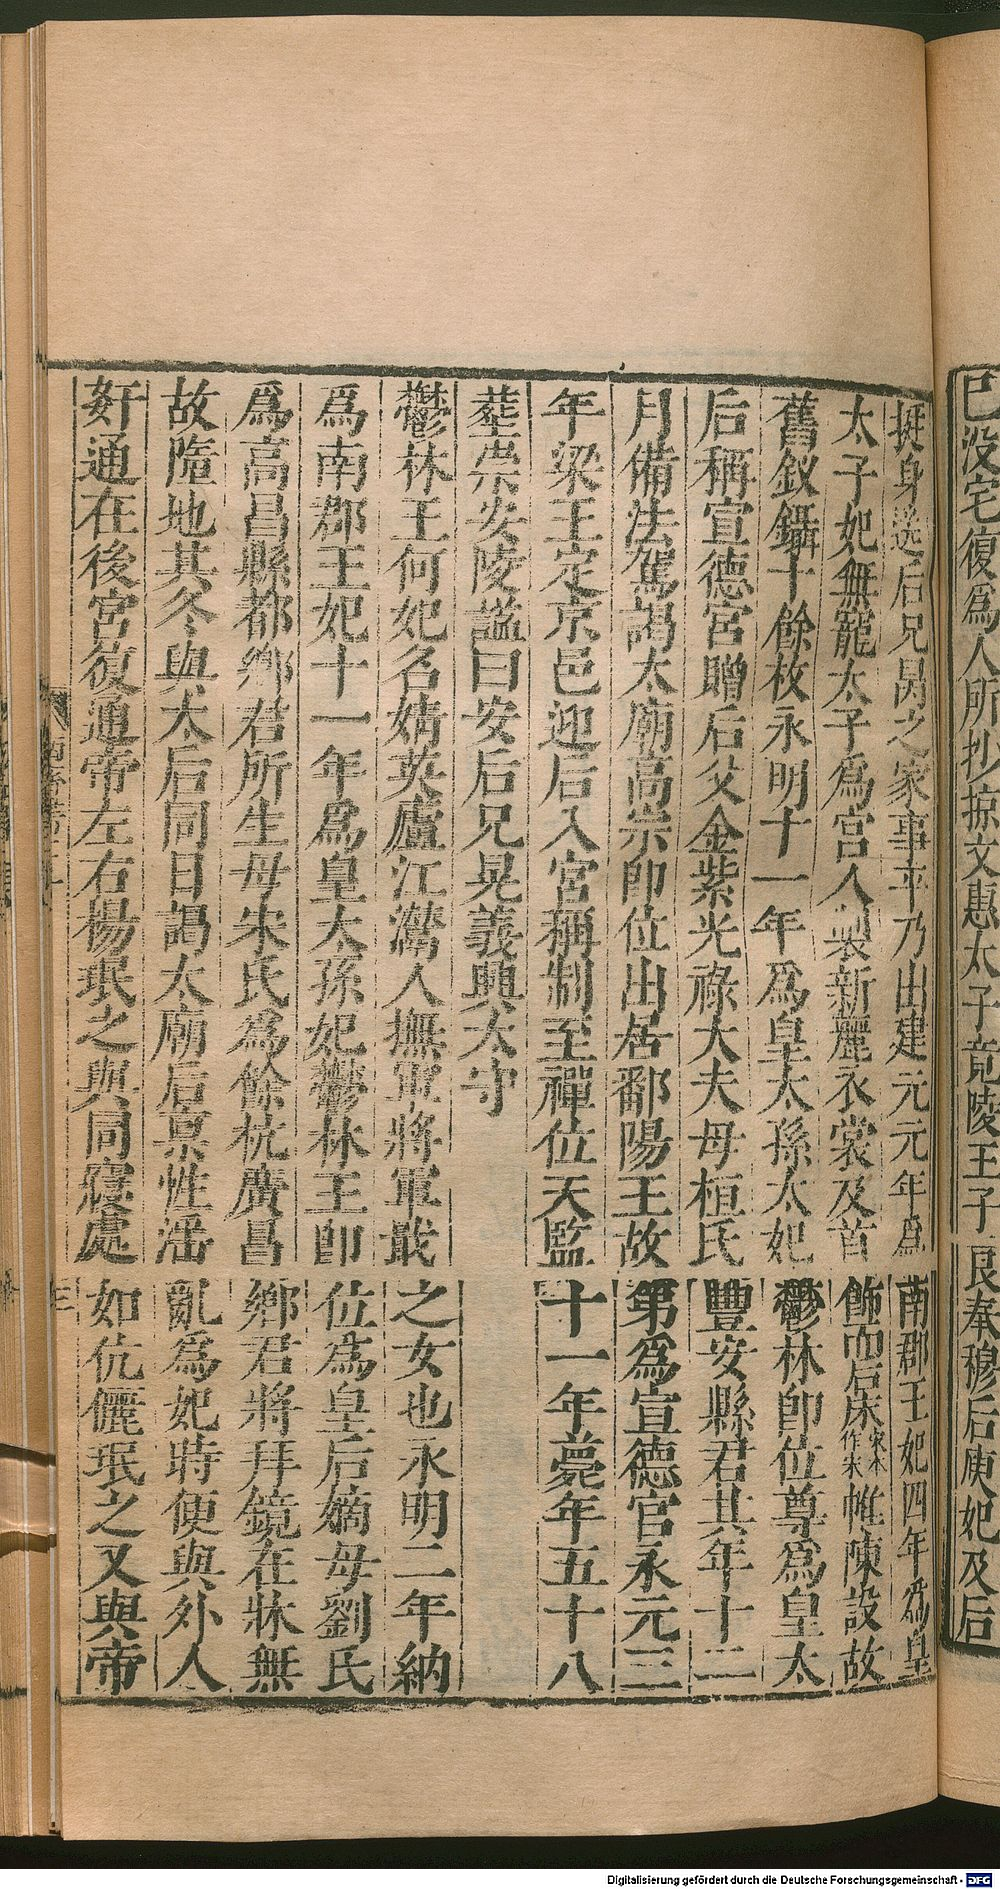 已没宅復爲人所抄掠文惠太子竟陵王子良奉穆后庾妃及后
挺身送后兄昺之家事平乃出建元元年爲南郡王妃四年爲皇
太子妃無寵太子爲宫人製新麗衣裳及首飾而后床宋本作宋帷陳設故
舊釵鑷十餘枚永明十一年爲皇太孫太妃鬱林即位尊爲皇太
后稱宣德宮贈后父金紫光祿大夫母桓氏豐安縣君其年十二
月備法駕謁太廟高宗即位出居鄱陽王故第爲宣德宫永元三
年梁王定京邑迎后入宮稱制至禪位天監十一年薨年五十八
葬崇安陵謚曰安后兄晃義興太守
鬱林王何妃名婧英廬江灊人撫軍將軍戢之女也永明二年納
爲南郡王妃十一年爲皇太孫妃鬱林王即位爲皇后嫡母劉氏
爲高昌縣都鄉君所生母宋氏爲餘杭廣昌鄉君將拜鏡在牀無
故墮地其冬與太后同日謁太廟后稟性淫亂爲妃時便與外人
姧通在後宮復通帝左右楊珉之與同寢處如伉儷珉之又與帝
Digitalisierung gefördert durch die Deutsche Forschungsgemeinschaft - DFG